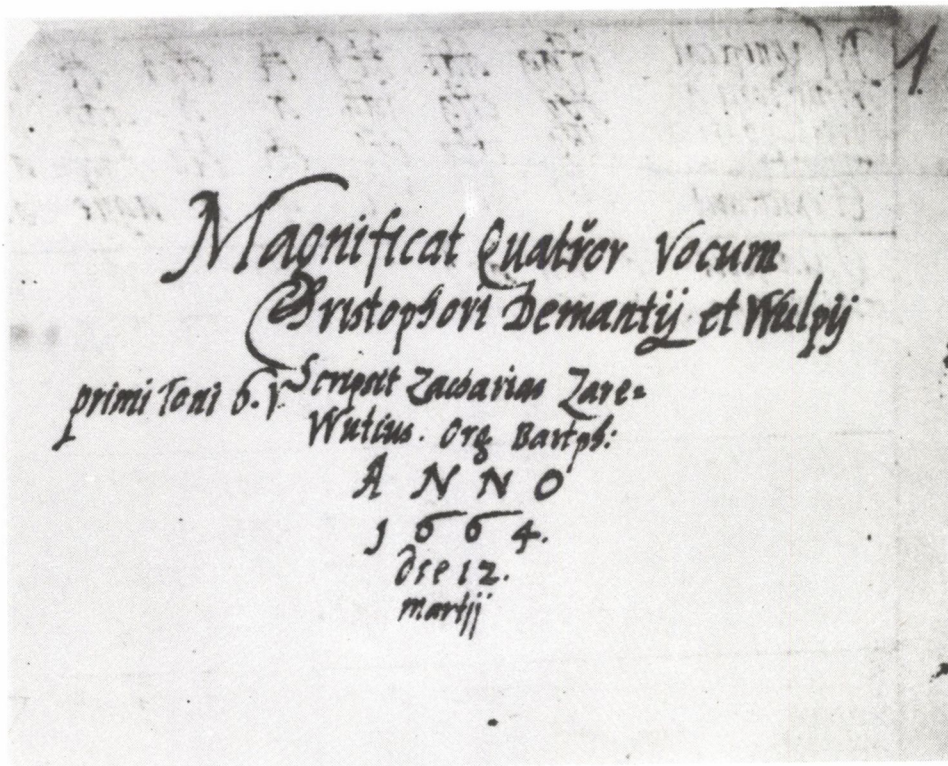 1
Magnificat Quatŭor Vocum
Christophori Demantij et Wulpij
Scripsit Zacharias Zare=
primi Toni 6. V
Wutius. Org Bartph:
ANNO
1664.
Die 12.
martij